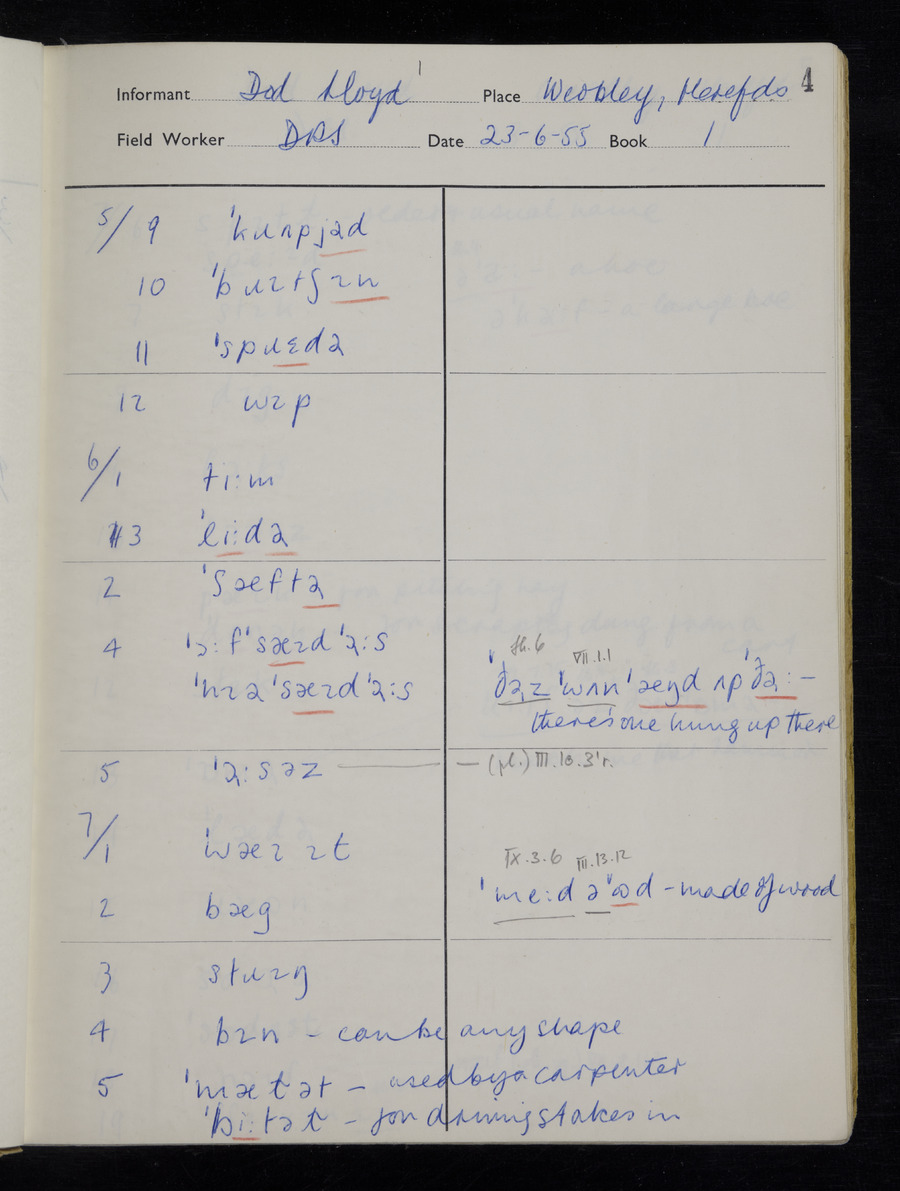 4
Informant Dod Lloyd Place Weobley, Herefds
Field Worker DRS Date 23-6-55 Book 1
5/9 ˈkɹʌpjəd
10 ˈbɹɪtʃɪn
11 ˈspɹɛdə
12 wɪp
6/1 tiːm
3 ˈliːdə
2 ˈʃæftə
4 ˈɔːfˈsæɪdˈɔːs
ˈnɪəˈsæɪdˈɔːs
th.6 VII.1.1
ˈðəz ˈwʌn ˈæŋd ʌp ˈðəː –
there's one hung up there
5 ˈɔːsəz — (pl.) III.10.3 r.
7/1 ˈwæɪ ɪt
IX.3.6 III.13.12
ˈmeːd əˈʊd – made of wood
2 bæg
3 stɹɪŋ
4 bɪn – can be any shape
5 ˈmætət – used by a carpenter
ˈbiːtət – for driving stakes in